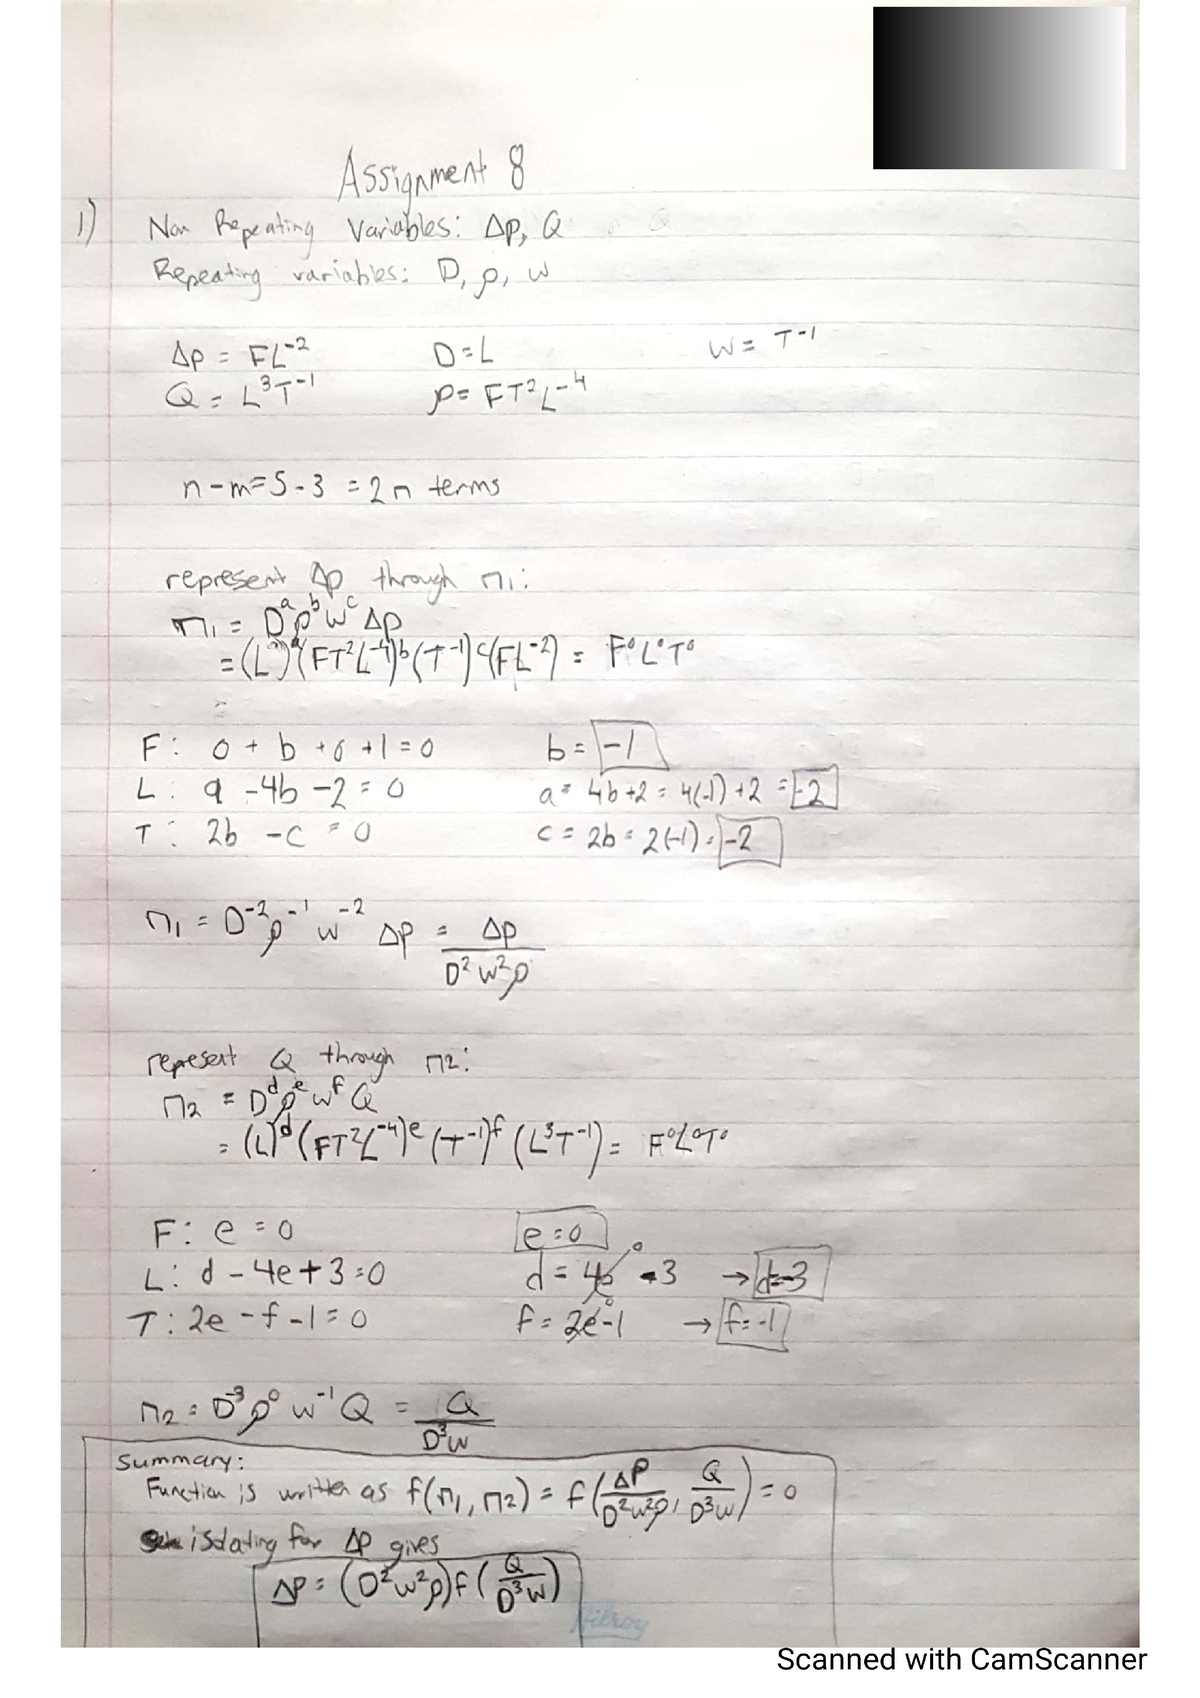 Assignment 8
1) Non Repeating Variables: Δp, Q
Repeating variables: D, ρ, w
Δp = FL⁻² D = L w = T⁻¹
Q = L³T⁻¹ ρ = FT²L⁻⁴
n - m = 5 - 3 = 2 π terms
represent Δp through π₁:
π₁ = Dᵃρᵇwᶜ Δp
= (L)ᵃ(FT²L⁻⁴)ᵇ(T⁻¹)ᶜ(FL⁻²) = F⁰L⁰T⁰
F: 0 + b + 0 + 1 = 0 b = -1
L: a - 4b - 2 = 0 a = 4b + 2 = 4(-1) + 2 = -2
T: 2b - c = 0 c = 2b = 2(-1) = -2
π₁ = D⁻²ρ⁻¹w⁻² Δp = Δp / D²w²ρ
represent Q through π₂:
π₂ = Dᵈρᵉwᶠ Q
= (L)ᵈ(FT²L⁻⁴)ᵉ(T⁻¹)ᶠ(L³T⁻¹) = F⁰L⁰T⁰
F: e = 0 e = 0
L: d - 4e + 3 = 0 d = 4e⁰ - 3 → d = -3
T: 2e - f - 1 = 0 f = 2e⁰ - 1 → f = -1
π₂ = D⁻³ρ⁰w⁻¹Q = Q / D³w
Summary:
Function is written as f(π₁, π₂) = f(Δp / D²w²ρ, Q / D³w) = 0
isolating for Δp gives
Δp = (D²w²ρ)f(Q / D³w)
Hilroy
Scanned with CamScanner